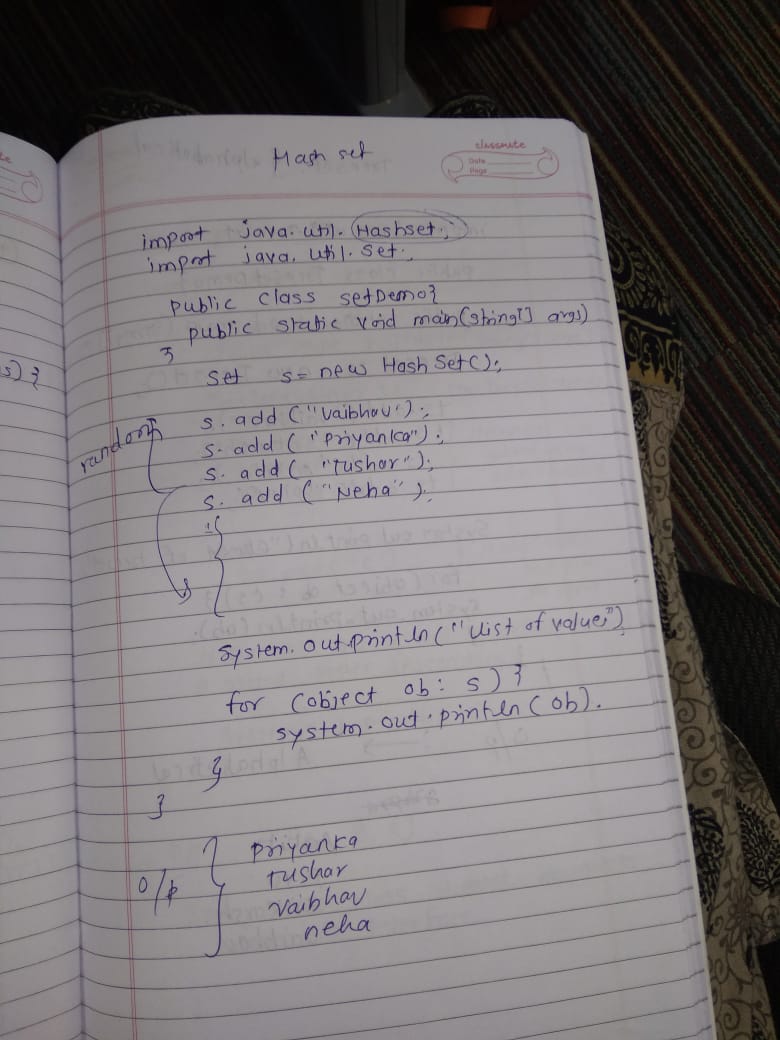 te
classmate
Date
Page
Hash set
import java.util.Hashset;
import java.util.Set;
public class setDemo{
public static void main(string[] args)
s) {
{
Set s= new Hash Set();
random
s.add("Vaibhav");
s.add("Priyanka");
s.add("Tushar");
s.add("Neha");
System.out.println("list of values")
for (object ob: s) {
system.out.println(ob).
}
}
o/p
Priyanka
Tushar
Vaibhav
neha